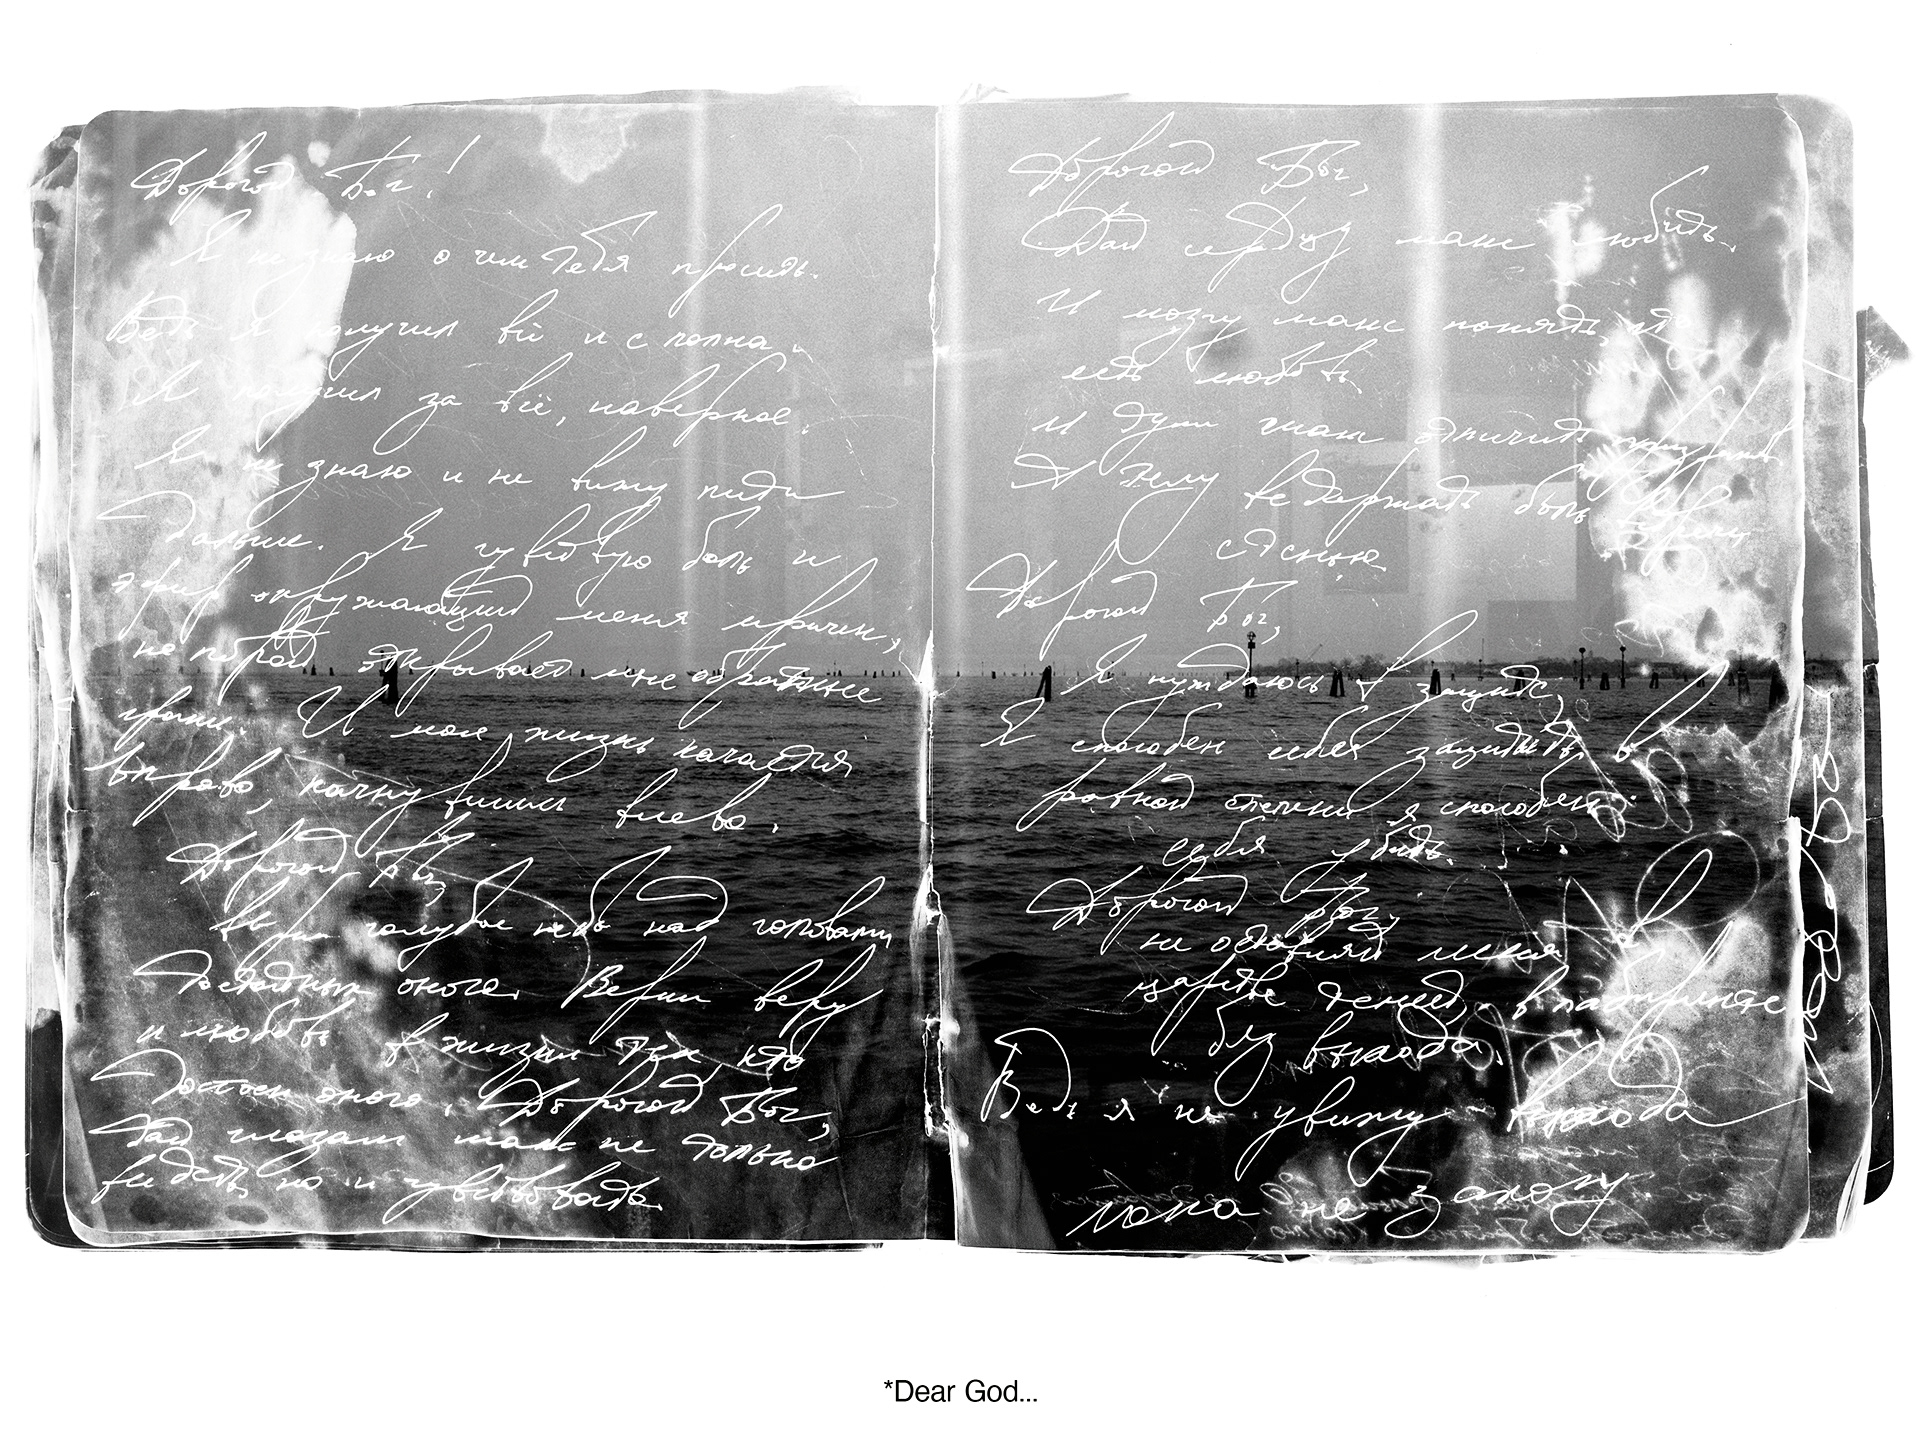 Дорогой Бог!
Я не знаю о чем Тебя просить.
Ведь я получил всё и сполна.
Я получил за всё, наверное.
Я не знаю и не вижу пути
дальше. Я чувствую боль и
эфир окружающий меня мрачен,
но порой открывает мне обратные
грани. И моя жизнь качается
вправо, качнувшись влево.
Дорогой Бог,
Верни голубое небо над головами
достойных оного. Верни веру
и любовь в жизни тех, кто
достоин оного. Дорогой Бог,
дай глазам шанс не только
видеть, но и чувствовать.
Дорогой Бог,
Дай сердцу шанс любить.
И мозгу шанс понять, что
есть любовь.
И душе шанс отличить
А телу выдержать боль
Дорогой Бог,
Я нуждаюсь в защите,
Я способен себя защитить, в
равной степени я способен
себя убить.
Дорогой Бог,
не оставляй меня
царстве теней, в лабиринте
без выхода.
Ведь я не увижу выхода
пока не захочу
*Dear God...